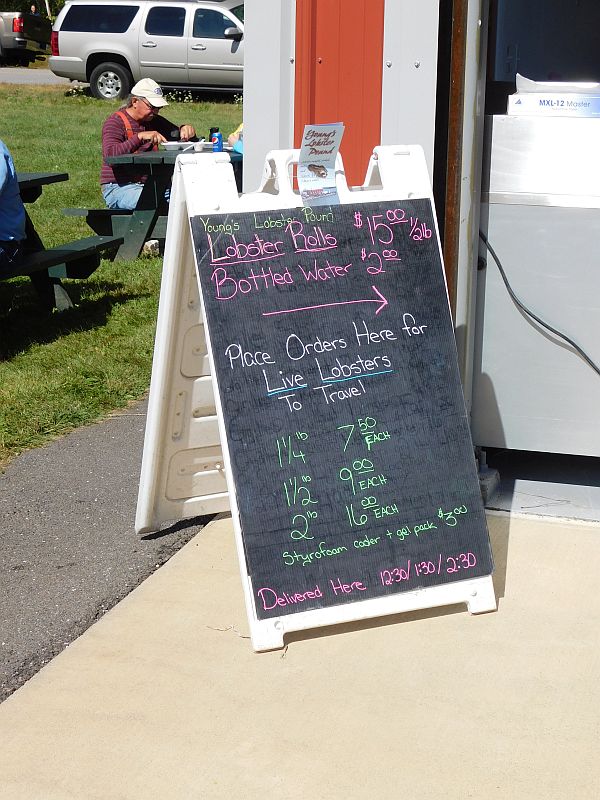 Young's
Lobster
Pound
MXL-12 Master
Young's Lobster Poun
Lobster Rolls $15.00 1/2 lb
Bottled Water $2.00
Place Orders Here for
Live Lobsters
To Travel
1 1/4 lb 7.50 EACH
1 1/2 9.00 EACH
2 lb 16.00 EACH
Styrofoam cooler + gel pack $3.00
Delivered Here 12:30/1:30/2:30